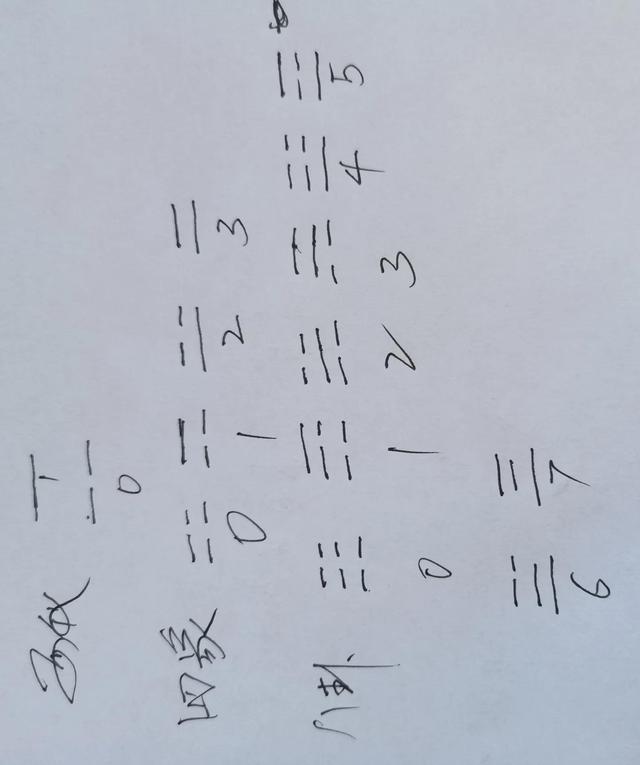 ⚊
1
⚋
0
四象 ⚏ ⚎ ⚍ ⚌
0 1 2 3
八卦 ☷ ☶ ☵ ☴ ☳ ☲
0 1 2 3 4 5
☱ ☰
6 7